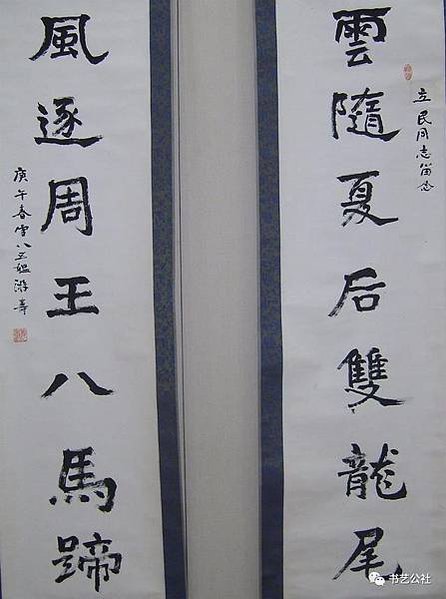 雲隨夏后雙龍尾
立民同志留念
風逐周王八馬蹄
庚午春雪八五媪游寿
书艺公社